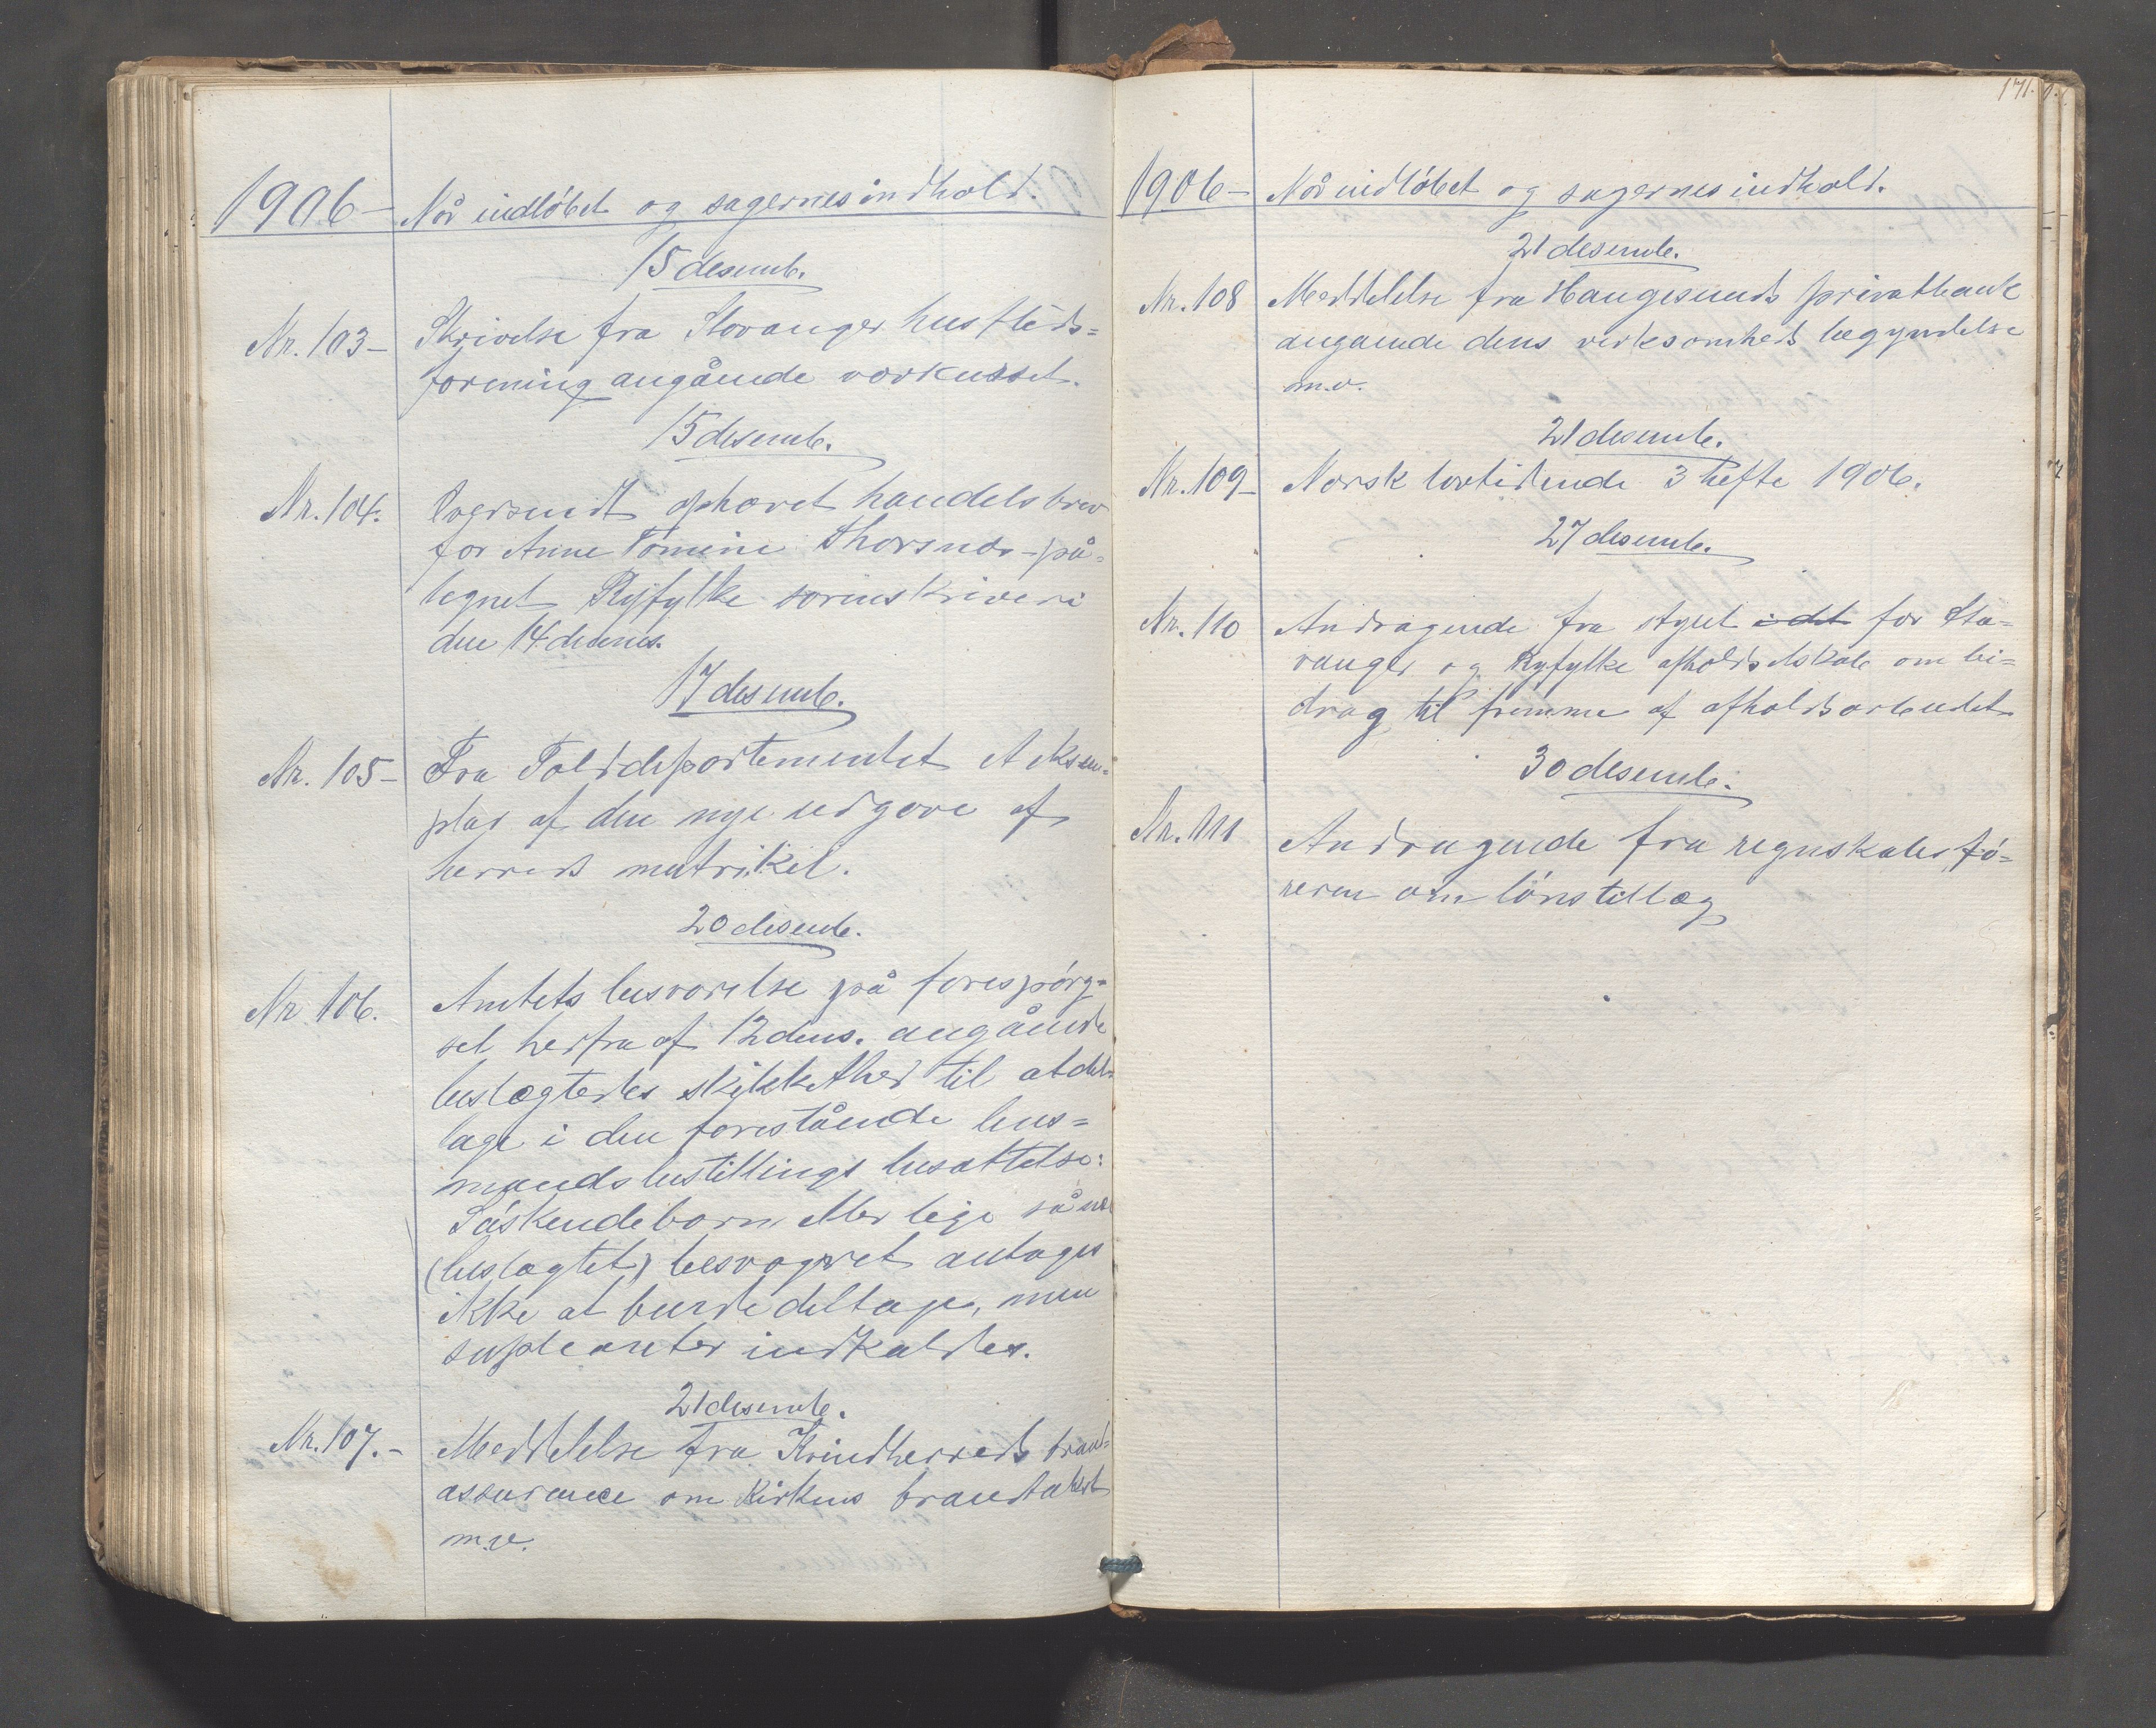 1906 – Når indløbet og sagernes indhold.
15 desemb.
Nr. 103 – Skrivelse fra Stavanger husflids=
forening angående vævkurset.
15 desemb.
Nr. 104. Oversendt ophævet handelsbrev
for Anne Tomine Thorsnes – på=
tegnet Ryfylke sorenskriveri
den 14 dennes.
17 desemb.
Nr. 105 – Fra Toldepartementet et eksem=
plar af den nye udgave af
herreds matrikel.
20 desemb.
Nr. 106. Amtets besvarelse på forespørg=
sel herfra af 12 dens. angående
beslægtedes skikkethed til at del=
tage i den forestående lens=
mandsbestillings besættelse:
Søskendebørn eller lige så nær
(beslægtet) besvogret antages
ikke at burde deltage, men
supleanter indkaldes.
21 desemb.
Nr. 107. – Meddelelse fra Kvindherreds brand=
assurance om kirkens brandtakst
m.v.
171.
1906 – Når indløbet og sagernes indhold.
21 desemb.
Nr. 108 Meddelelse fra Haugesunds privatbank
angaaende dens virksomheds begyndelse
m.v.
21 desemb.
Nr. 109 – Norsk lovtidende 3 hefte 1906.
27 desemb.
Nr. 110 Andragende fra styret i det for Sta=
vanger og Ryfylke afholdselskab om bi=
drag til fremme af afholdsarbeidet
30 desemb.
Nr. 111 Andragende fra regnskabsfø=
reren om lønstillæg